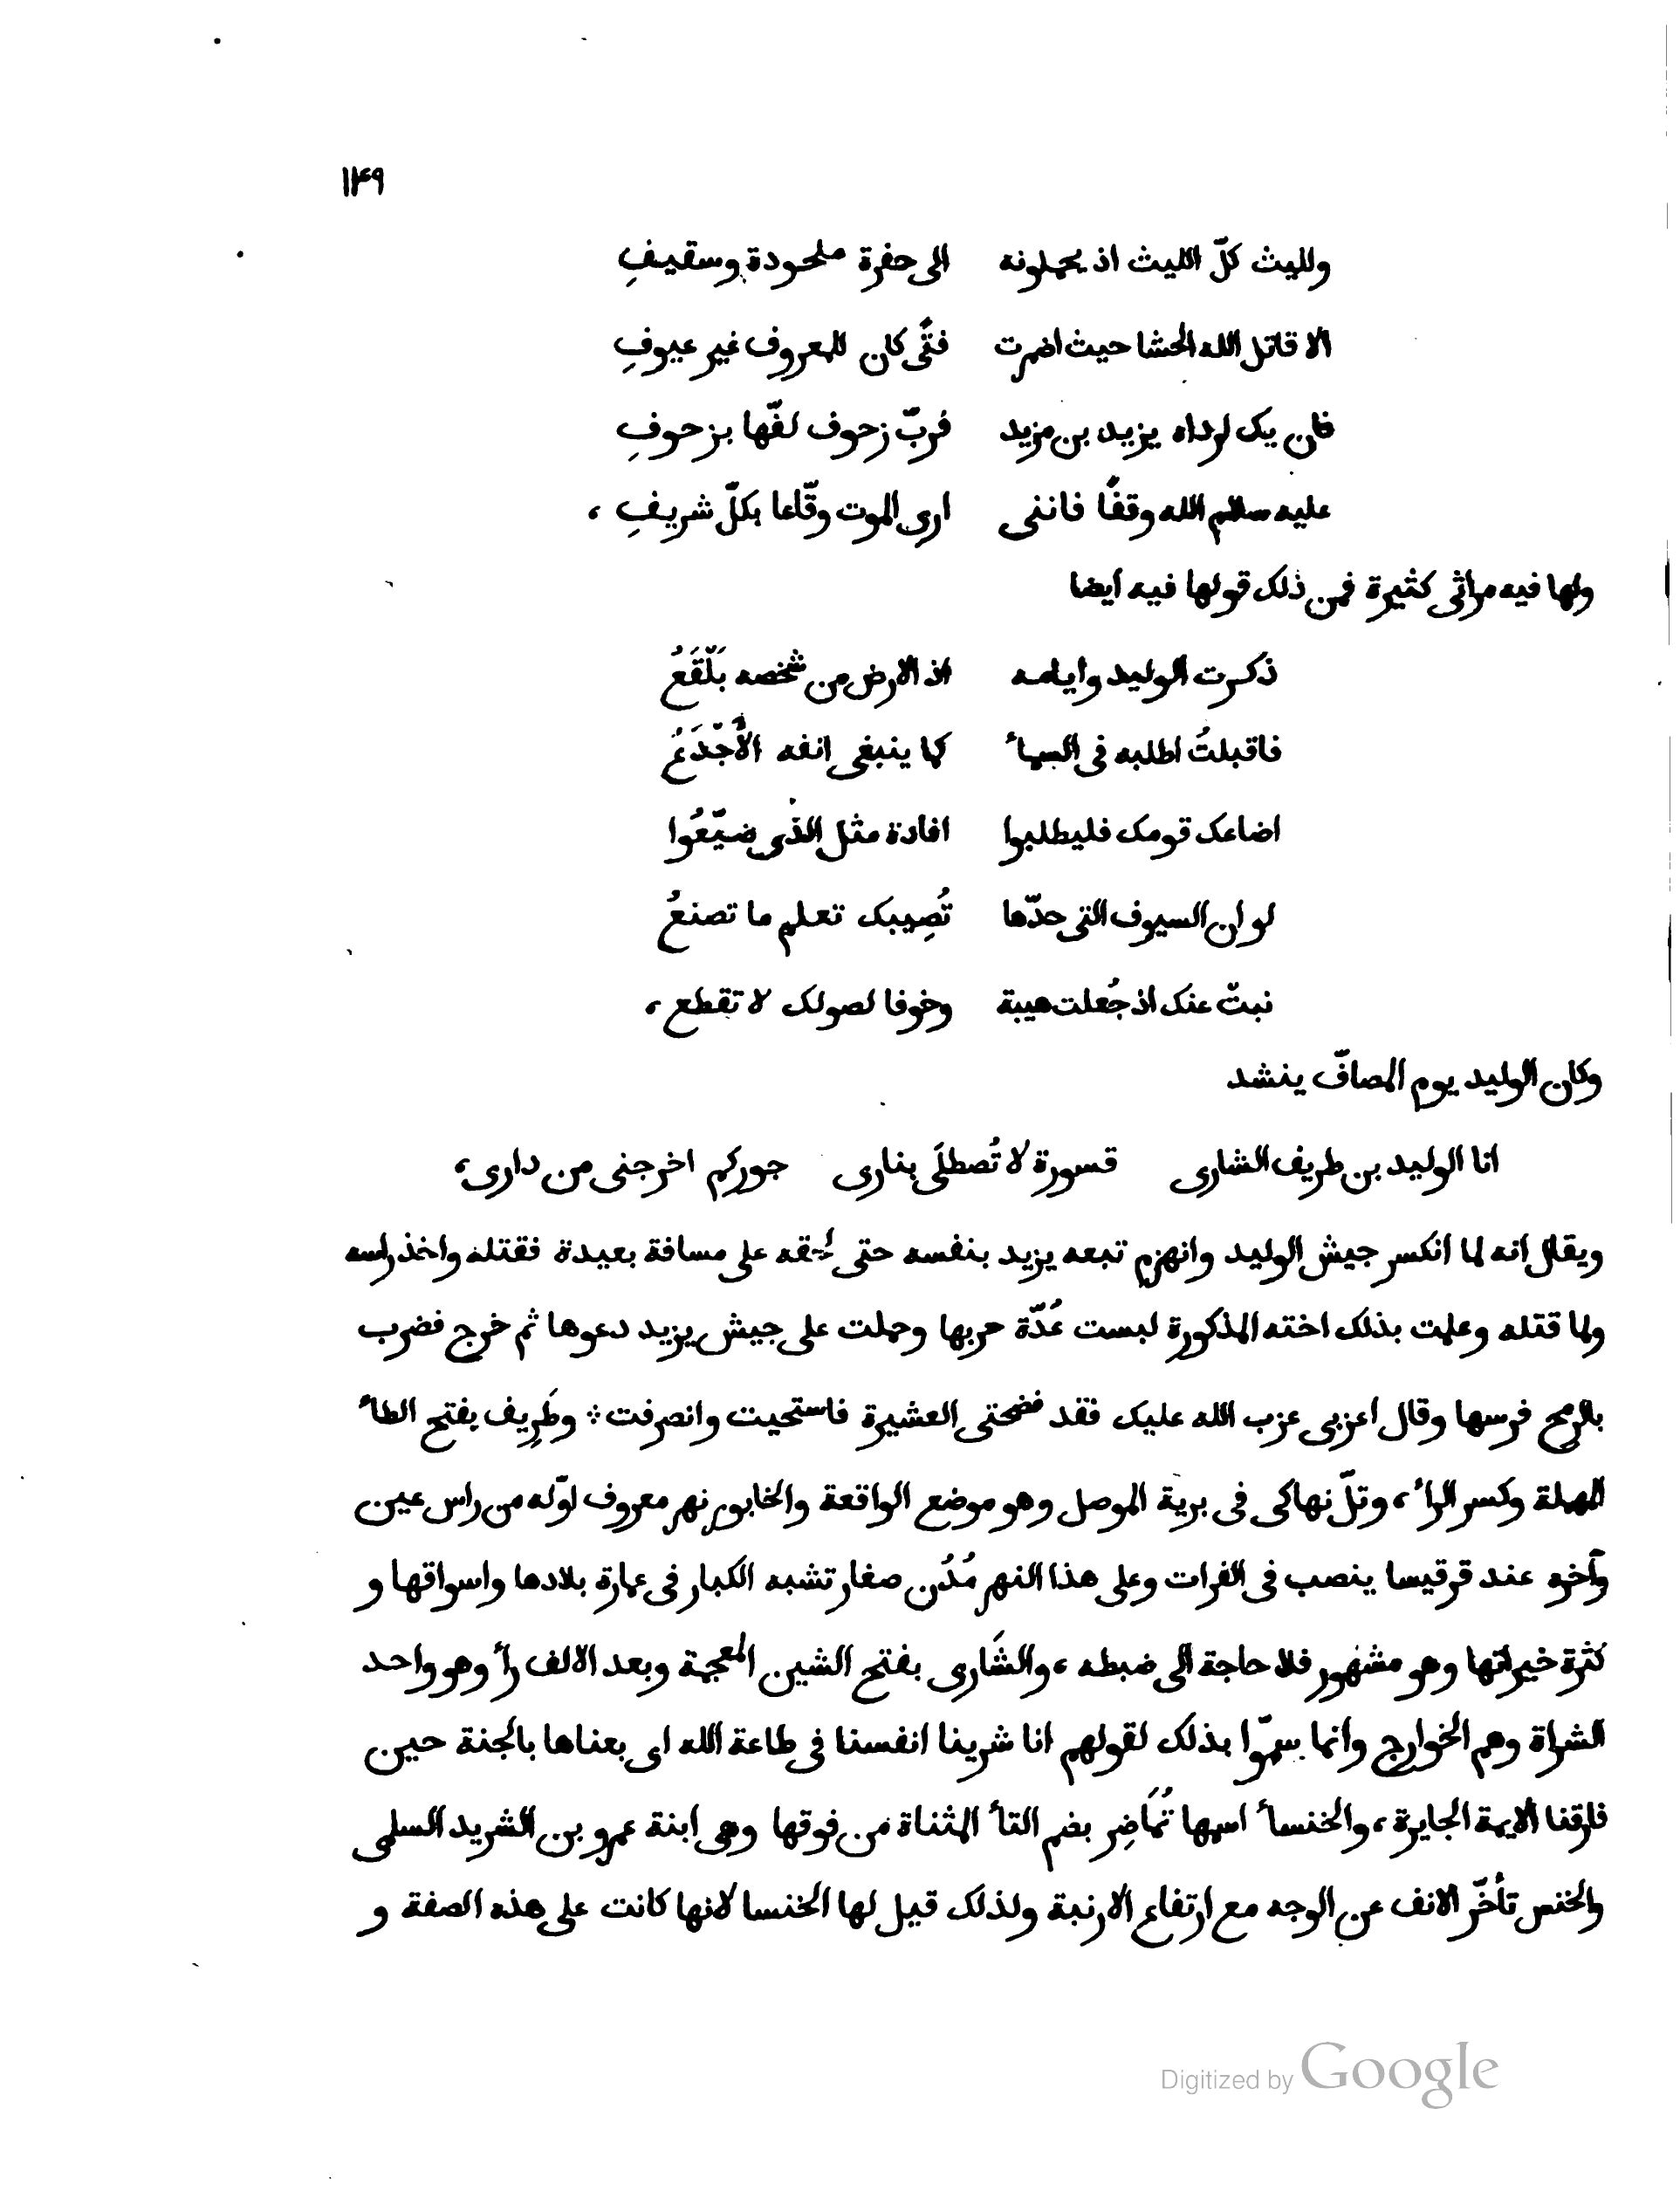 ١٤٩
ولليث كلّ الليث اذ يحملونه الى حفرة ملحودة وسقيفِ
الا قاتل الله الحشا حيث اضمرت فتًى كان للمعروف غير عيوفِ
فان يك ارداه يزيد بن مزيد فربّ زحوف لفّها بزحوفِ
عليه سلام الله وقفًا فاننى ارى الموت وقّاعا بكلّ شريفِ ،
ولها فيه مراثى كثيرة فمن ذلك قولها فيه ايضا
ذكرت الوليد وايامه اذ الارض من شخصه بَلْقَعُ
فاقبلتُ اطلبه فى السماء كما ينبغى انفه الأَجْدَعُ
اضاعك قومك فليطلبوا افادة مثل الذى ضيّعُوا
لو ان السيوف التى حدّها تُصِيبك تعلم ما تصنعُ
نبتْ عنك اذ جُعلت هيبة وخوفا لصولك لا تقطع ،
وكان الوليد يوم المصافّ ينشد
انا الوليد بن طريف الشارى قسورة لا تُصطلَى بنارى جوركم اخرجنى من دارى ،
ويقال انه لما انكسر جيش الوليد وانهزم تبعه يزيد بنفسه حتى لحقه على مسافة بعيدة فقتله واخذ راسه
ولما قتله وعلمت بذلك اخته المذكورة لبست عُدّة حربها وحملت على جيش يزيد دعوها ثم خرج فضرب
بالرمح فرسها وقال اعزبى عزب الله عليك فقد فضحتى العشيرة فاستحيت وانصرفت ؞ وطَرِيف بفتح الطاء
المهملة وكسر الراء ، وتلّ نهاكى فى برية الموصل وهو موضع الواقعة والخابور نهر معروف اوّله من راس عين
وآخره عند قرقيسا ينصب فى الفرات وعلى هذا النهر مُدُن صغار تشبه الكبار فى عمارة بلادها واسواقها و
كثرة خيراتها وهو مشهور فلا حاجة الى ضبطه ، والشَارى بفتح الشين المعجمة وبعد الالف راء وهو واحد
الشراة وهم الخوارج وانما سمّوا بذلك لقولهم انا شرينا انفسنا فى طاعة الله اى بعناها بالجنة حين
فارقنا الايمة الجايرة ، والخنساء اسمها تُمَاضِر بضم التاء المثناة من فوقها وهى ابنة عمرو بن الشريد السلمى
والخنس تأخّر الانف عن الوجه مع ارتفاع الارنبة ولذلك قيل لها الخنسا لانها كانت على هذه الصفة و
Digitized by Google